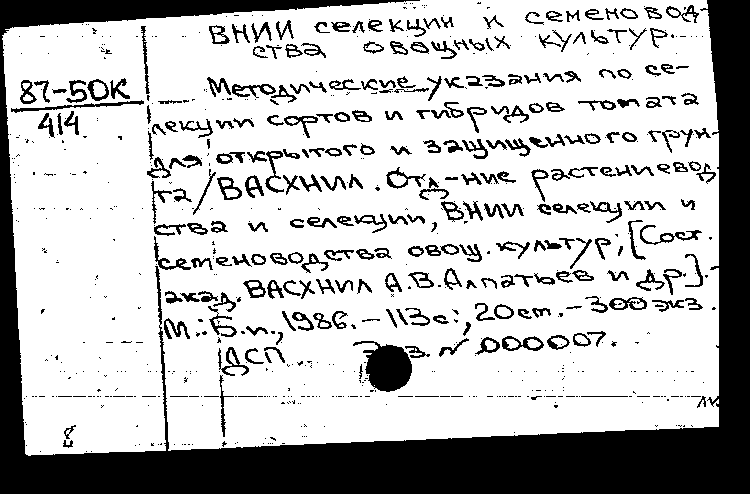 ВНИИ селекции и семеновод-
ства овощных культур.
87-50К
414
Методические указания по се-
лекции сортов и гибридов томата
для открытого и защищенного грун-
та / ВАСХНИЛ. Отд-ние растениевод
ства и селекции, ВНИИ селекции и
семеноводства овощ. культур; [Сост.
акад. ВАСХНИЛ А.В.Алпатьев и др.].-
М.: Б.и., 1986.-113с.; 20см.-300экз.
ДСП. Экз. № 000007.
8